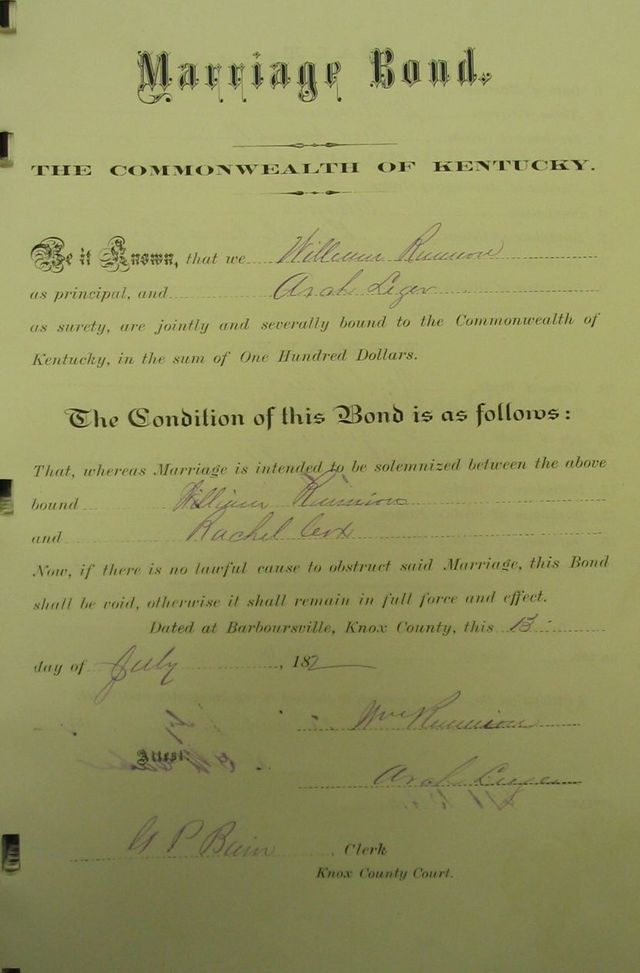 Marriage Bond.
THE COMMONWEALTH OF KENTUCKY.
Be it Known, that we William Runnion
as principal, and Arah Leger
as surety, are jointly and severally bound to the Commonwealth of
Kentucky, in the sum of One Hundred Dollars.
The Condition of this Bond is as follows:
That, whereas Marriage is intended to be solemnized between the above
bound William Runnion
and Rachel Cox
Now, if there is no lawful cause to obstruct said Marriage, this Bond
shall be void, otherwise it shall remain in full force and effect.
Dated at Barboursville, Knox County, this 13
day of July, 182
Wm Runnion
Attest
Arah
G P Bain Clerk
Knox County Court.